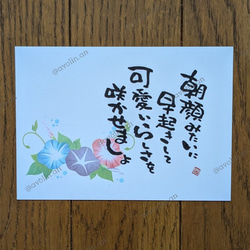 朝顔みたいに
早起きして
可愛いらしさを
咲かせましょ
@avolin.an
@avolin.an
@avolin.an
@avolin.an